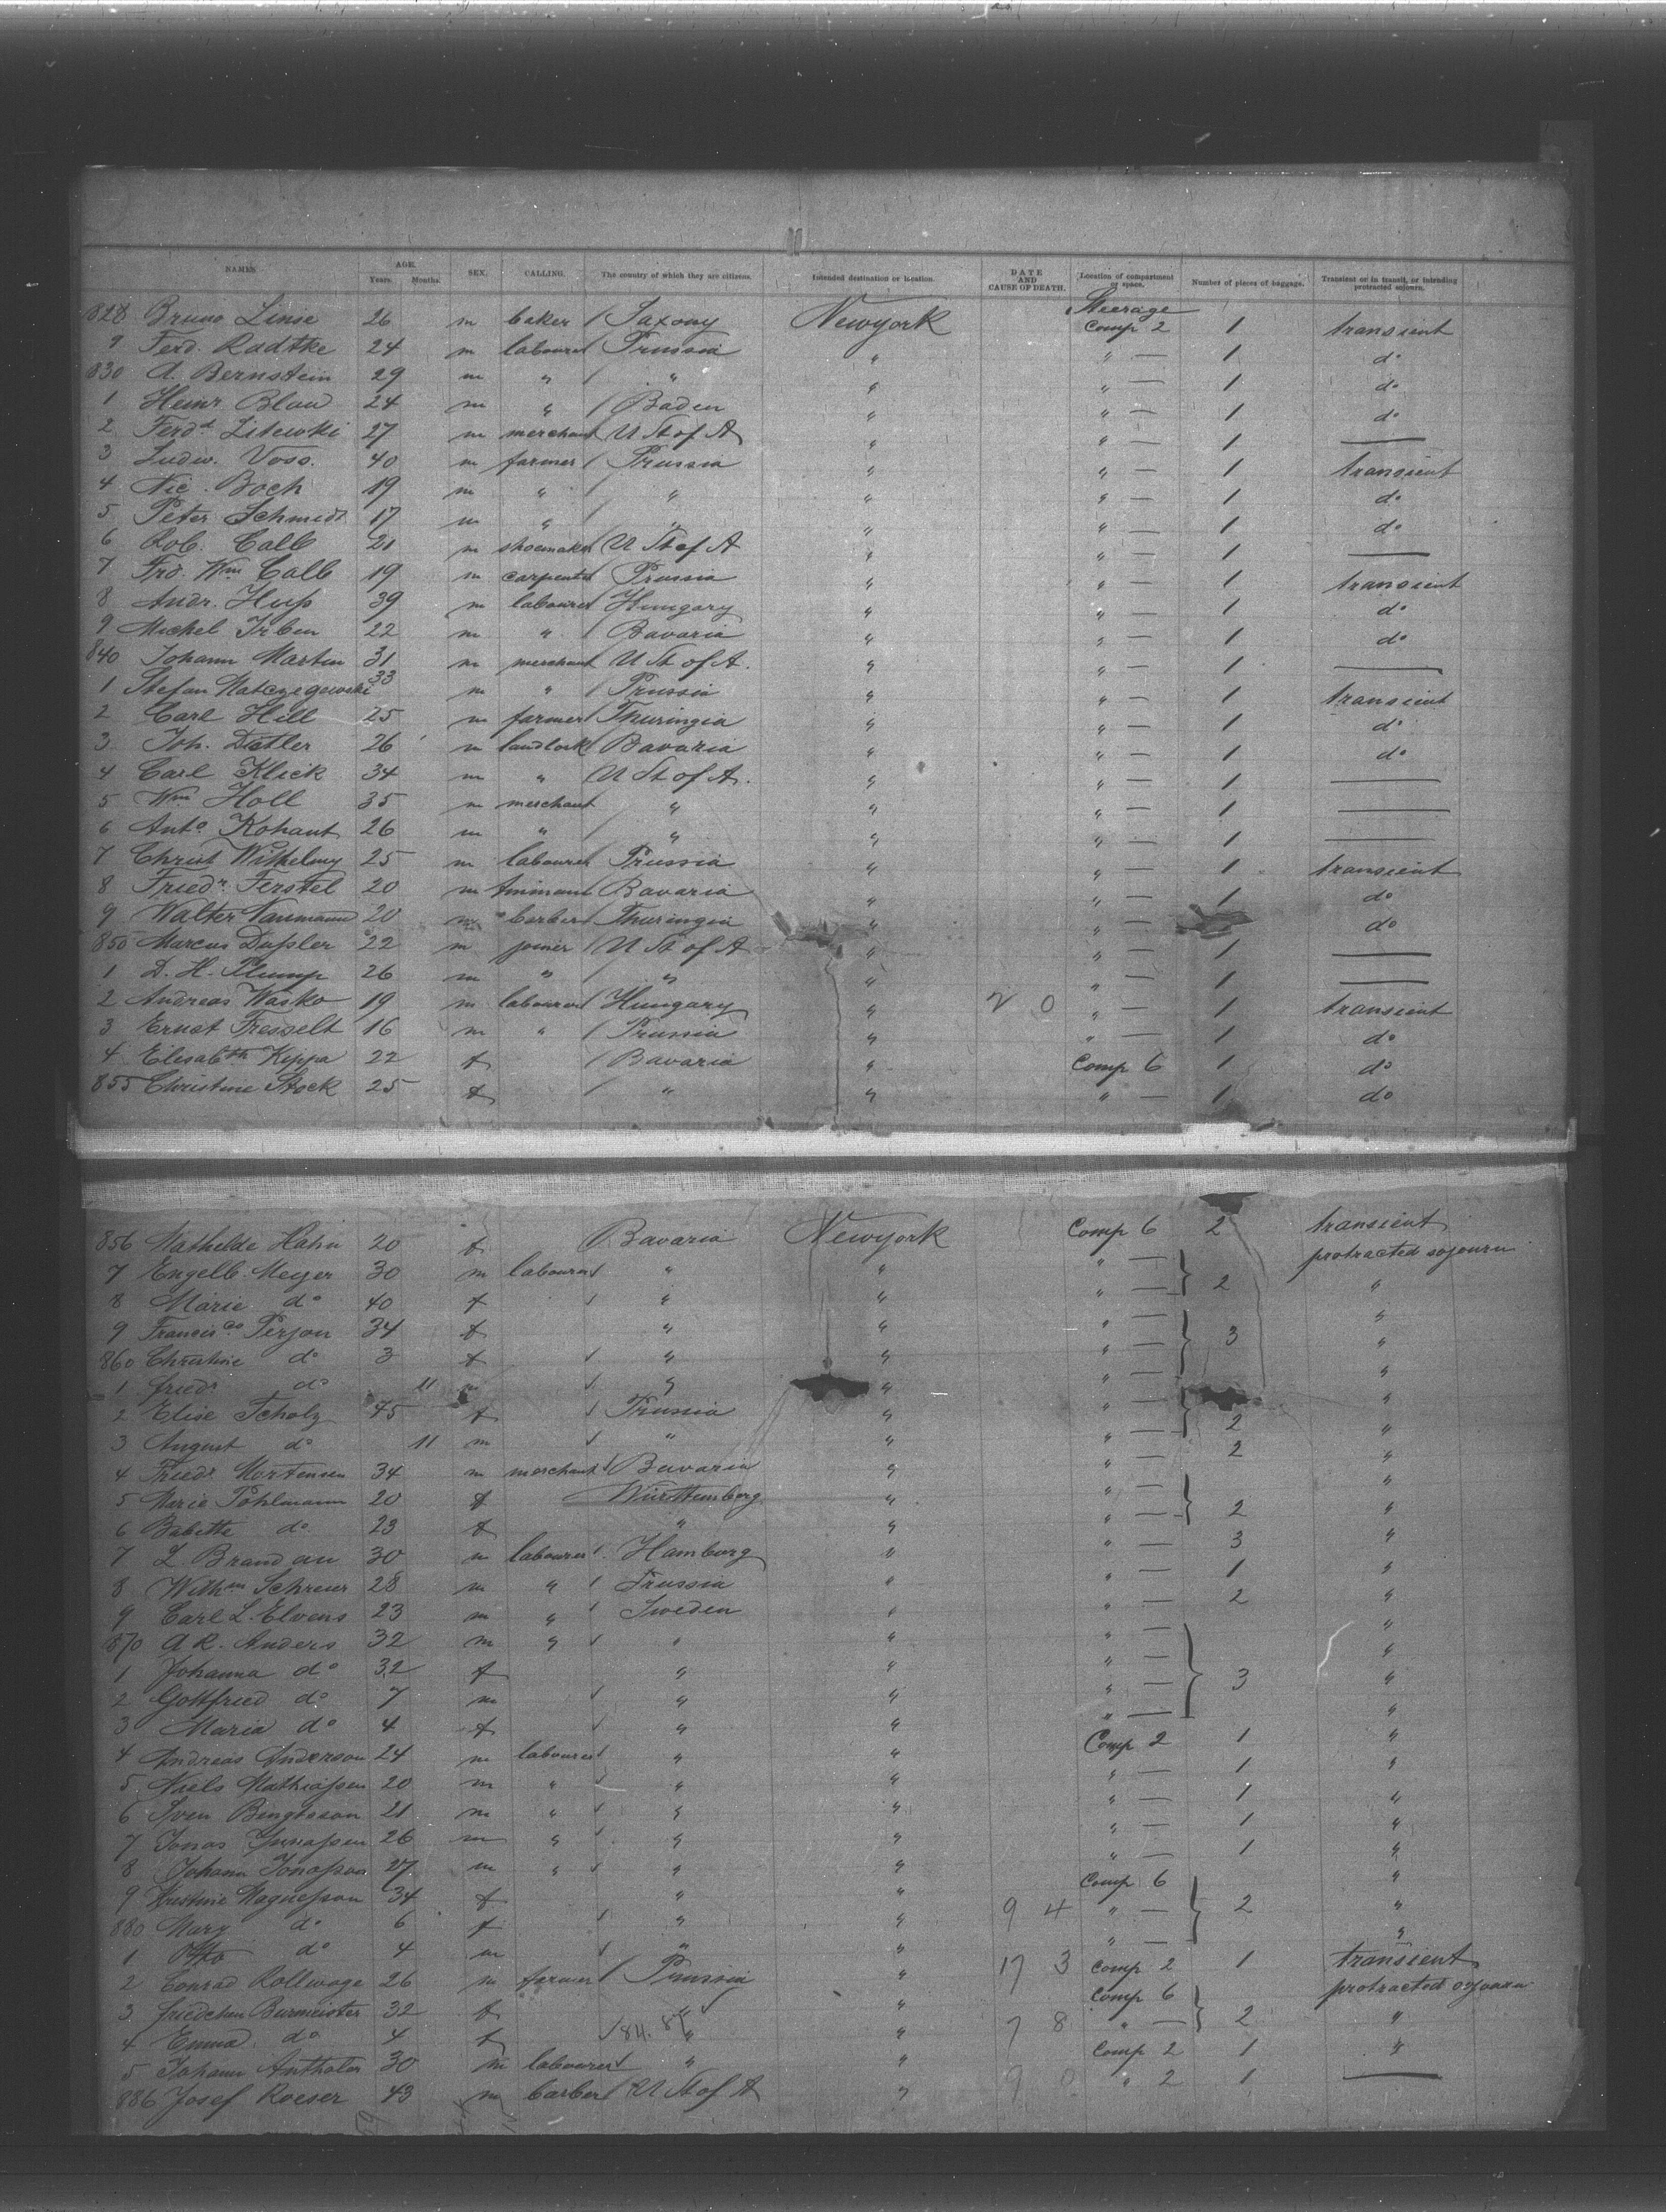 NAMES. AGE. Years. Months. SEX. CALLING. The country of which they are citizens. Intended destination or location. DATE AND CAUSE OF DEATH. Location of compartment or space. Number of pieces of baggage. Transient or in transit, or intending protracted sojourn.
828 Bruno Linse 26 m baker / Saxony Newyork Steerage Comp 2 1 transient
9 Ferd. Radtke 24 m labourer Prussia " " — 1 do
830 A. Bernstein 29 m " / " " " — 1 do
1 Heinr Blau 24 m " / Baden " " — 1 do
2 Ferdd Litewki 27 m merchant U St of A " " — 1 —
3 Ludw. Voss. 40 m farmer / Prussia " " — 1 transient
4 Nic. Boch 19 m " / " " " — 1 do
5 Peter Schmidt 17 m " / " " " — 1 do
6 Rob. Calb 21 m shoemaker U St of A " " — 1 —
7 Frd. Wm Calb 19 m carpenter Prussia " " — 1 transient
8 Andr. Huß 39 m labourer Hungary " " — 1 do
9 Michel Irben 22 m " / Bavaria " " — 1 do
840 Johann Martin 31 m merchant U St of A. " " — 1 —
1 Stefan 33 m " / Prussia " " — 1 transient
2 Carl Hill 25 m farmer Thuringia " " — 1 do
3 Joh. Distler 26 m landlord Bavaria " " — 1 do
4 Carl Klick 34 m " U St of A. " " — 1 —
5 Wm Holl 35 m merchant " " " — 1 —
6 Anto Kohaut 26 m " / " " " — 1 —
7 Christ Withelmy 25 m labourer Prussia " " — 1 transient
8 Friedr. Ferstel 20 m Bavaria " " — 1 do
9 Walter Naumann 20 m barber Thuringia " " — do
850 Marcus Daßler 22 m joiner / U St of A " " — 1 —
1 D. H. Plump 26 m " / " " " — 1 —
2 Andreas Wasko 19 m labourer Hungary " 2 0 " — 1 transient
3 Ernst Fresselt 16 m " / Prussia " " — 1 do
4 Elisabth Kippa 22 f / Bavaria " Comp 6 1 do
855 Christine Stock 25 f / " " " — 1 do
856 Mathelde Hahn 20 f Bavaria Newyork Comp 6 2 transient
7 Engelb. Meyer 30 m labourer " " " — 2 protracted sojourn
8 Marie do 40 f " " " — "
9 Francisca Perjon 34 f " " " — 3 "
860 Christine do 3 f " " " — "
1 friedr do 11 m " " " — "
2 Elise Scholz 45 f Prussia " " — 2 "
3 August do 11 m " " " — "
4 Friedr. Mortensen 34 m merchant Bavaria " " — 2 "
5 Marie Pohlmann 20 f Württemberg " " — 2 "
6 Babette do 23 f " " " — "
7 L. Brandau 30 m labourer Hamburg " " — 3 "
8 Wilhm Schreier 28 m " / Prussia " " — 1 "
9 Carl L. Elvens 23 m " / Sweden " " — 2 "
870 A R. Anders 32 m " " " " — 3 "
1 Johanna do 32 f " " " — "
2 Gottfried do 7 m " " " — "
3 Maria do 4 f " " " — "
4 Andreas Anderson 24 m labourer " " Comp 2 1 "
5 Niels Mathiaßen 20 m " " " " — 1 "
6 Sven Bengtsson 21 m " " " " — 1 "
7 Jonas 26 m " " " " — "
8 Johann Jonaßon 27 m " " " " — 1 "
9 Magneßon 34 f " " Comp 6 2 "
880 Mary do 6 f " " 9 4 " — "
1 Otto do 4 m " " " — "
2 Conrad Rollwage 26 m farmer / Prussia " 17 3 Comp 2 1 transient
3 friedchen Burmeister 32 f " " Comp 6 2 protracted sojourn
4 Emma do 4 f " " 7 8 " — "
5 Johann Anthaler 30 m labourer " " Comp 2 1 "
886 Josef Roeser 43 m barber U St of A " 9 0 " 2 1 —